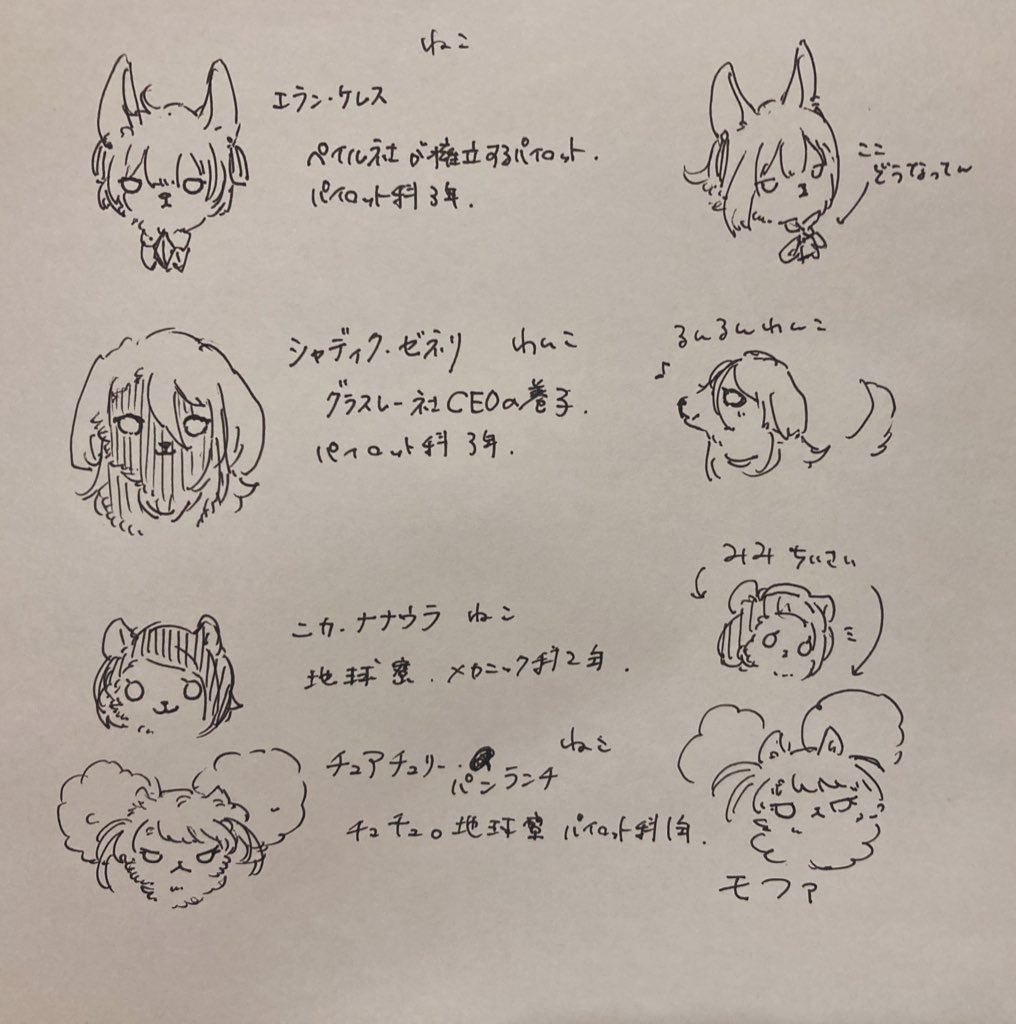 ねこ
エラン・ケレス
ペイル社が擁立するパイロット.
パイロット科3年.
ここ
どうなってん
シャディク・ゼネリ わんこ
グラスレー社CEOの養子.
パイロット科3年.
るんるんわんこ
♪
ニカ・ナナウラ ねこ
地球寮.メカニック科2年.
みみちいさい
チュアチュリー・
パンランチ
ねこ
チュチュ。地球寮 パイロット科1年.
モファ